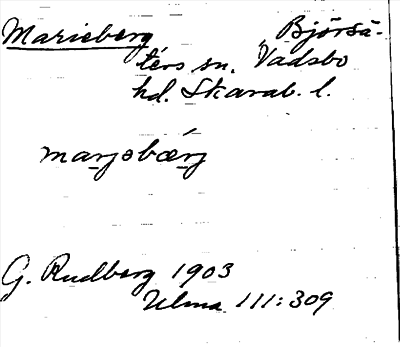 Marieberg Björsä-
ters sn. Vadsbo
hd. Skarab. l.
marjəbærj
G. Rudberg 1903
Ulma 111:309